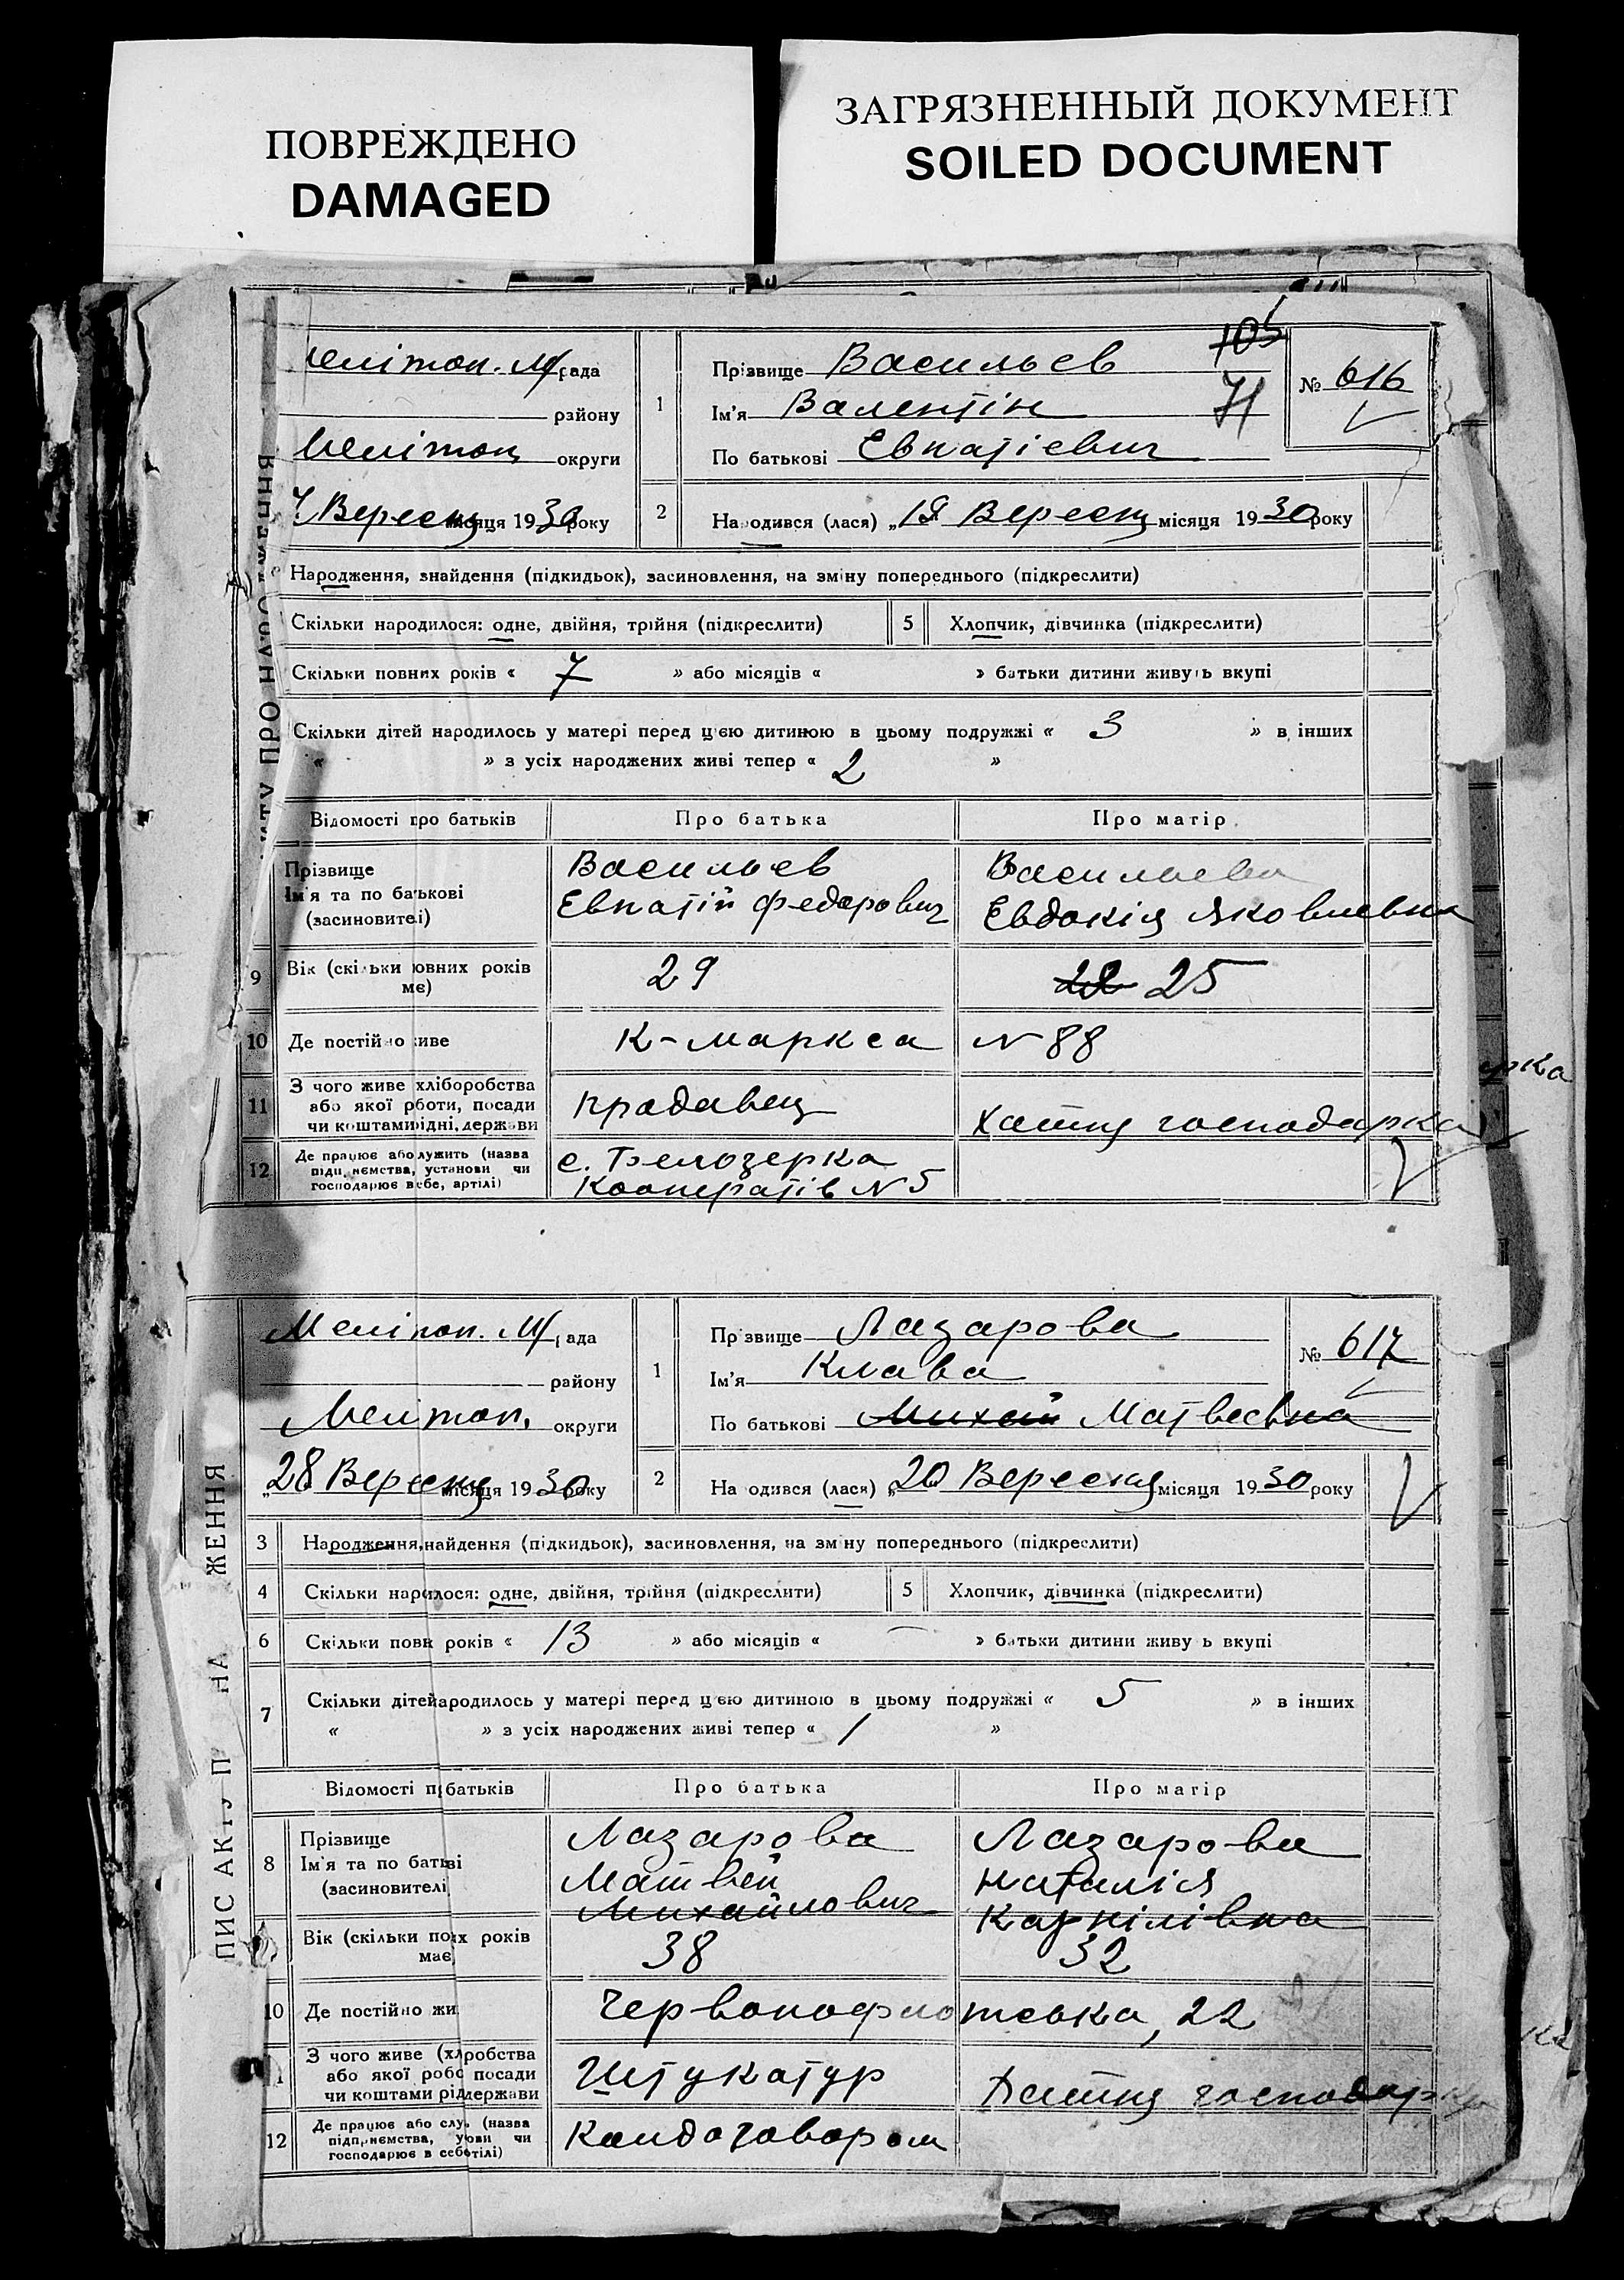 ПОВРЕЖДЕНО
DAMAGED
ЗАГРЯЗНЕННЫЙ ДОКУМЕНТ
SOILED DOCUMENT
Мелітоп. М/рада
району
Мелітоп. округи
Вересня місяця 1930 року
1
Прізвище Васильев
Ім'я Валентін
По батькові Евпатіевич
105
71
№ 616
2
Народився (лася) „ Вересня місяця 1930 року
Народження, знайдення (підкидьок), засиновлення, на зміну попереднього (підкреслити)
Скільки народилося: одне, двійня, трійня (підкреслити)
5
Хлопчик, дівчинка (підкреслити)
Скільки повних років « 7 » або місяців « » батьки дитини живуть вкупі
Скільки дітей народилось у матері перед цією дитиною в цьому подружжі « 3 » в інших
« » з усіх народжених живі тепер « 2 »
Відомості про батьків
Про батька
Про матір
Прізвище
Ім'я та по батькові
(засиновителі)
Васильев
Евпатій Федорович
Васильева
Евдокія Яковлевна
9
Вік (скільки повних років
має)
29
22 25
10
Де постійно живе
К-Маркса N 88
11
З чого живе хліборобства
або якої роботи, посади
чи коштами рідні, держави
продавец
Хатня господарка
12
Де працює або служить (назва
підприємства, установи чи
господарює в себе, артілі)
с. Белозерка
Кооператів N 5
Мелітоп. М/рада
району
Мелітоп. округи
„28 Вересня місяця 1930 року
1
Прізвище Лазарова
Ім'я Клава
По батькові Михай Матвеевна
№ 617
2
Народився (лася) „20 Вересня місяця 1930 року
3
Народження, знайдення (підкидьок), засиновлення, на зміну попереднього (підкреслити)
4
Скільки народилося: одне, двійня, трійня (підкреслити)
5
Хлопчик, дівчинка (підкреслити)
6
Скільки повних років « 13 » або місяців « — » батьки дитини живуть вкупі
7
Скільки дітей народилось у матері перед цією дитиною в цьому подружжі « 5 » в інших
« » з усіх народжених живі тепер « 1 »
Відомості про батьків
Про батька
Про матір
8
Прізвище
Ім'я та по батькові
(засиновителі)
Лазарова
Матвей
Михайлович
Лазарова
Наталія
Карпілівна
Вік (скільки повних років
має)
38
32
10
Де постійно живе
Червонофлотська, 22
11
З чого живе (хліборобства
або якої роботи, посади
чи коштами рідні, держави
Штукатур
Хатня господарка
12
Де працює або служить (назва
підприємства, установи чи
господарює в себе, артілі)